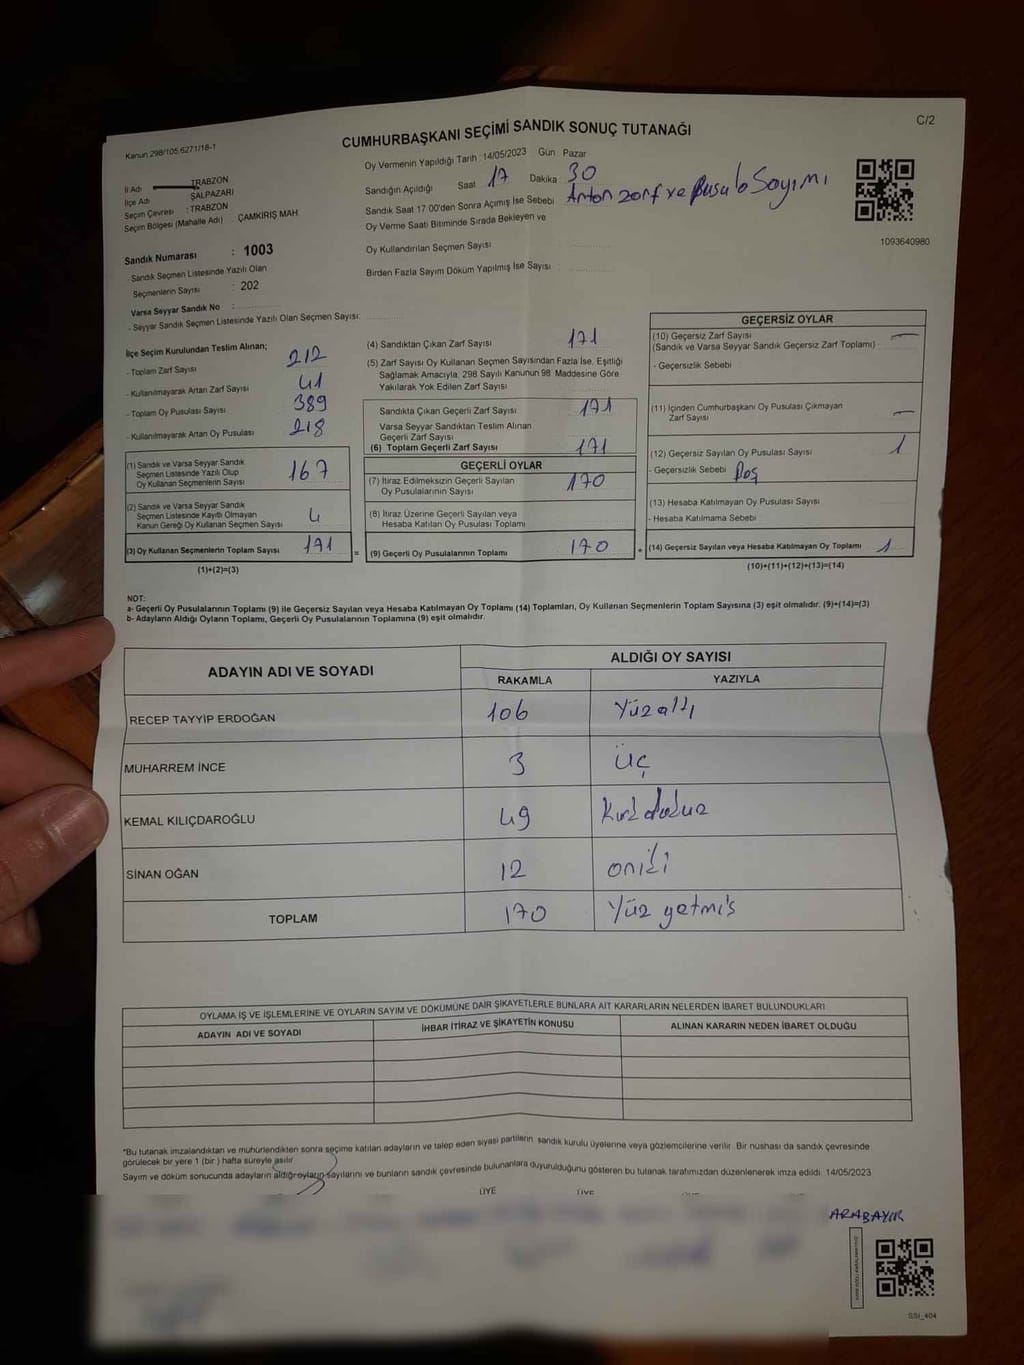 C/2
CUMHURBAŞKANI SEÇİMİ SANDIK SONUÇ TUTANAĞI
Kanun:298/105;6271/18-1
İl Adı TRABZON
İlçe Adı ŞALPAZARI
Seçim Çevresi : TRABZON
Seçim Bölgesi (Mahalle Adı) : ÇAMKİRİŞ MAH
Sandık Numarası : 1003
- Sandık Seçmen Listesinde Yazılı Olan
Seçmenlerin Sayısı : 202
Varsa Seyyar Sandık No :
- Seyyar Sandık Seçmen Listesinde Yazılı Olan Seçmen Sayısı:
Oy Vermenin Yapıldığı Tarih : 14/05/2023 Gün Pazar
Sandığın Açıldığı Saat 17 Dakika 30
Sandık Saat 17:00'den Sonra Açımış İse Sebebi : Artan zarf ve pusula Sayımı
Oy Verme Saati Bitiminde Sırada Bekleyen ve
Oy Kullandırılan Seçmen Sayısı
Birden Fazla Sayım Döküm Yapılmış İse Sayısı :
1093640980
İlçe Seçim Kurulundan Teslim Alınan;
- Toplam Zarf Sayısı 212
- Kullanılmayarak Artan Zarf Sayısı 41
- Toplam Oy Pusulası Sayısı 389
- Kullanılmayarak Artan Oy Pusulası 218
(1) Sandık ve Varsa Seyyar Sandık
Seçmen Listesinde Yazılı Olup
Oy Kullanan Seçmenlerin Sayısı 167
(2) Sandık ve Varsa Seyyar Sandık
Seçmen Listesinde Kayıtlı Olmayan
Kanun Gereği Oy Kullanan Seçmen Sayısı 4
(3) Oy Kullanan Seçmenlerin Toplam Sayısı 171
(1)+(2)=(3)
(4) Sandıktan Çıkan Zarf Sayısı 171
(5) Zarf Sayısı Oy Kullanan Seçmen Sayısından Fazla İse, Eşitliği
Sağlamak Amacıyla; 298 Sayılı Kanunun 98. Maddesine Göre
Yakılarak Yok Edilen Zarf Sayısı
Sandıkta Çıkan Geçerli Zarf Sayısı 171
Varsa Seyyar Sandıktan Teslim Alınan
Geçerli Zarf Sayısı
(6) Toplam Geçerli Zarf Sayısı 171
GEÇERLİ OYLAR
(7) İtiraz Edilmeksizin Geçerli Sayılan
Oy Pusulalarının Sayısı 170
(8) İtiraz Üzerine Geçerli Sayılan veya
Hesaba Katılan Oy Pusulası Toplamı
= (9) Geçerli Oy Pusulalarının Toplamı 170 +
GEÇERSİZ OYLAR
(10) Geçersiz Zarf Sayısı —
(Sandık ve Varsa Seyyar Sandık Geçersiz Zarf Toplamı)
- Geçersizlik Sebebi :
(11) İçinden Cumhurbaşkanı Oy Pusulası Çıkmayan
Zarf Sayısı —
(12) Geçersiz Sayılan Oy Pusulası Sayısı 1
- Geçersizlik Sebebi Boş
(13) Hesaba Katılmayan Oy Pusulası Sayısı
- Hesaba Katılmama Sebebi
(14) Geçersiz Sayılan veya Hesaba Katılmayan Oy Toplamı 1
(10)+(11)+(12)+(13)=(14)
NOT:
a- Geçerli Oy Pusulalarının Toplamı (9) ile Geçersiz Sayılan veya Hesaba Katılmayan Oy Toplamı (14) Toplamları, Oy Kullanan Seçmenlerin Toplam Sayısına (3) eşit olmalıdır. (9)+(14)=(3)
b- Adayların Aldığı Oyların Toplamı, Geçerli Oy Pusulalarının Toplamına (9) eşit olmalıdır.
ADAYIN ADI VE SOYADI ALDIĞI OY SAYISI
RAKAMLA YAZIYLA
RECEP TAYYİP ERDOĞAN 106 Yüzaltı
MUHARREM İNCE 3 üç
KEMAL KILIÇDAROĞLU 49 Kırkdokuz
SİNAN OĞAN 12 oniki
TOPLAM 170 Yüz yetmiş
OYLAMA İŞ VE İŞLEMLERİNE VE OYLARIN SAYIM VE DÖKÜMÜNE DAİR ŞİKAYETLERLE BUNLARA AİT KARARLARIN NELERDEN İBARET BULUNDUKLARI
ADAYIN ADI VE SOYADI İHBAR İTİRAZ VE ŞİKAYETİN KONUSU ALINAN KARARIN NEDEN İBARET OLDUĞU
*Bu tutanak imzalandıktan ve mühürlendikten sonra seçime katılan adayların ve talep eden siyasi partilerin sandık kurulu üyelerine veya gözlemcilerine verilir. Bir nüshası da sandık çevresinde
görülecek bir yere 1 (bir) hafta süreyle asılır.
Sayım ve döküm sonucunda adayların aldığı oyların sayılarını ve bunların sandık çevresinde bulunanlara duyurulduğunu gösteren bu tutanak taraftımızdan düzenlenerek imza edildi. 14/05/2023
ÜYE ÜYE
ARABAYIR
SSI_404